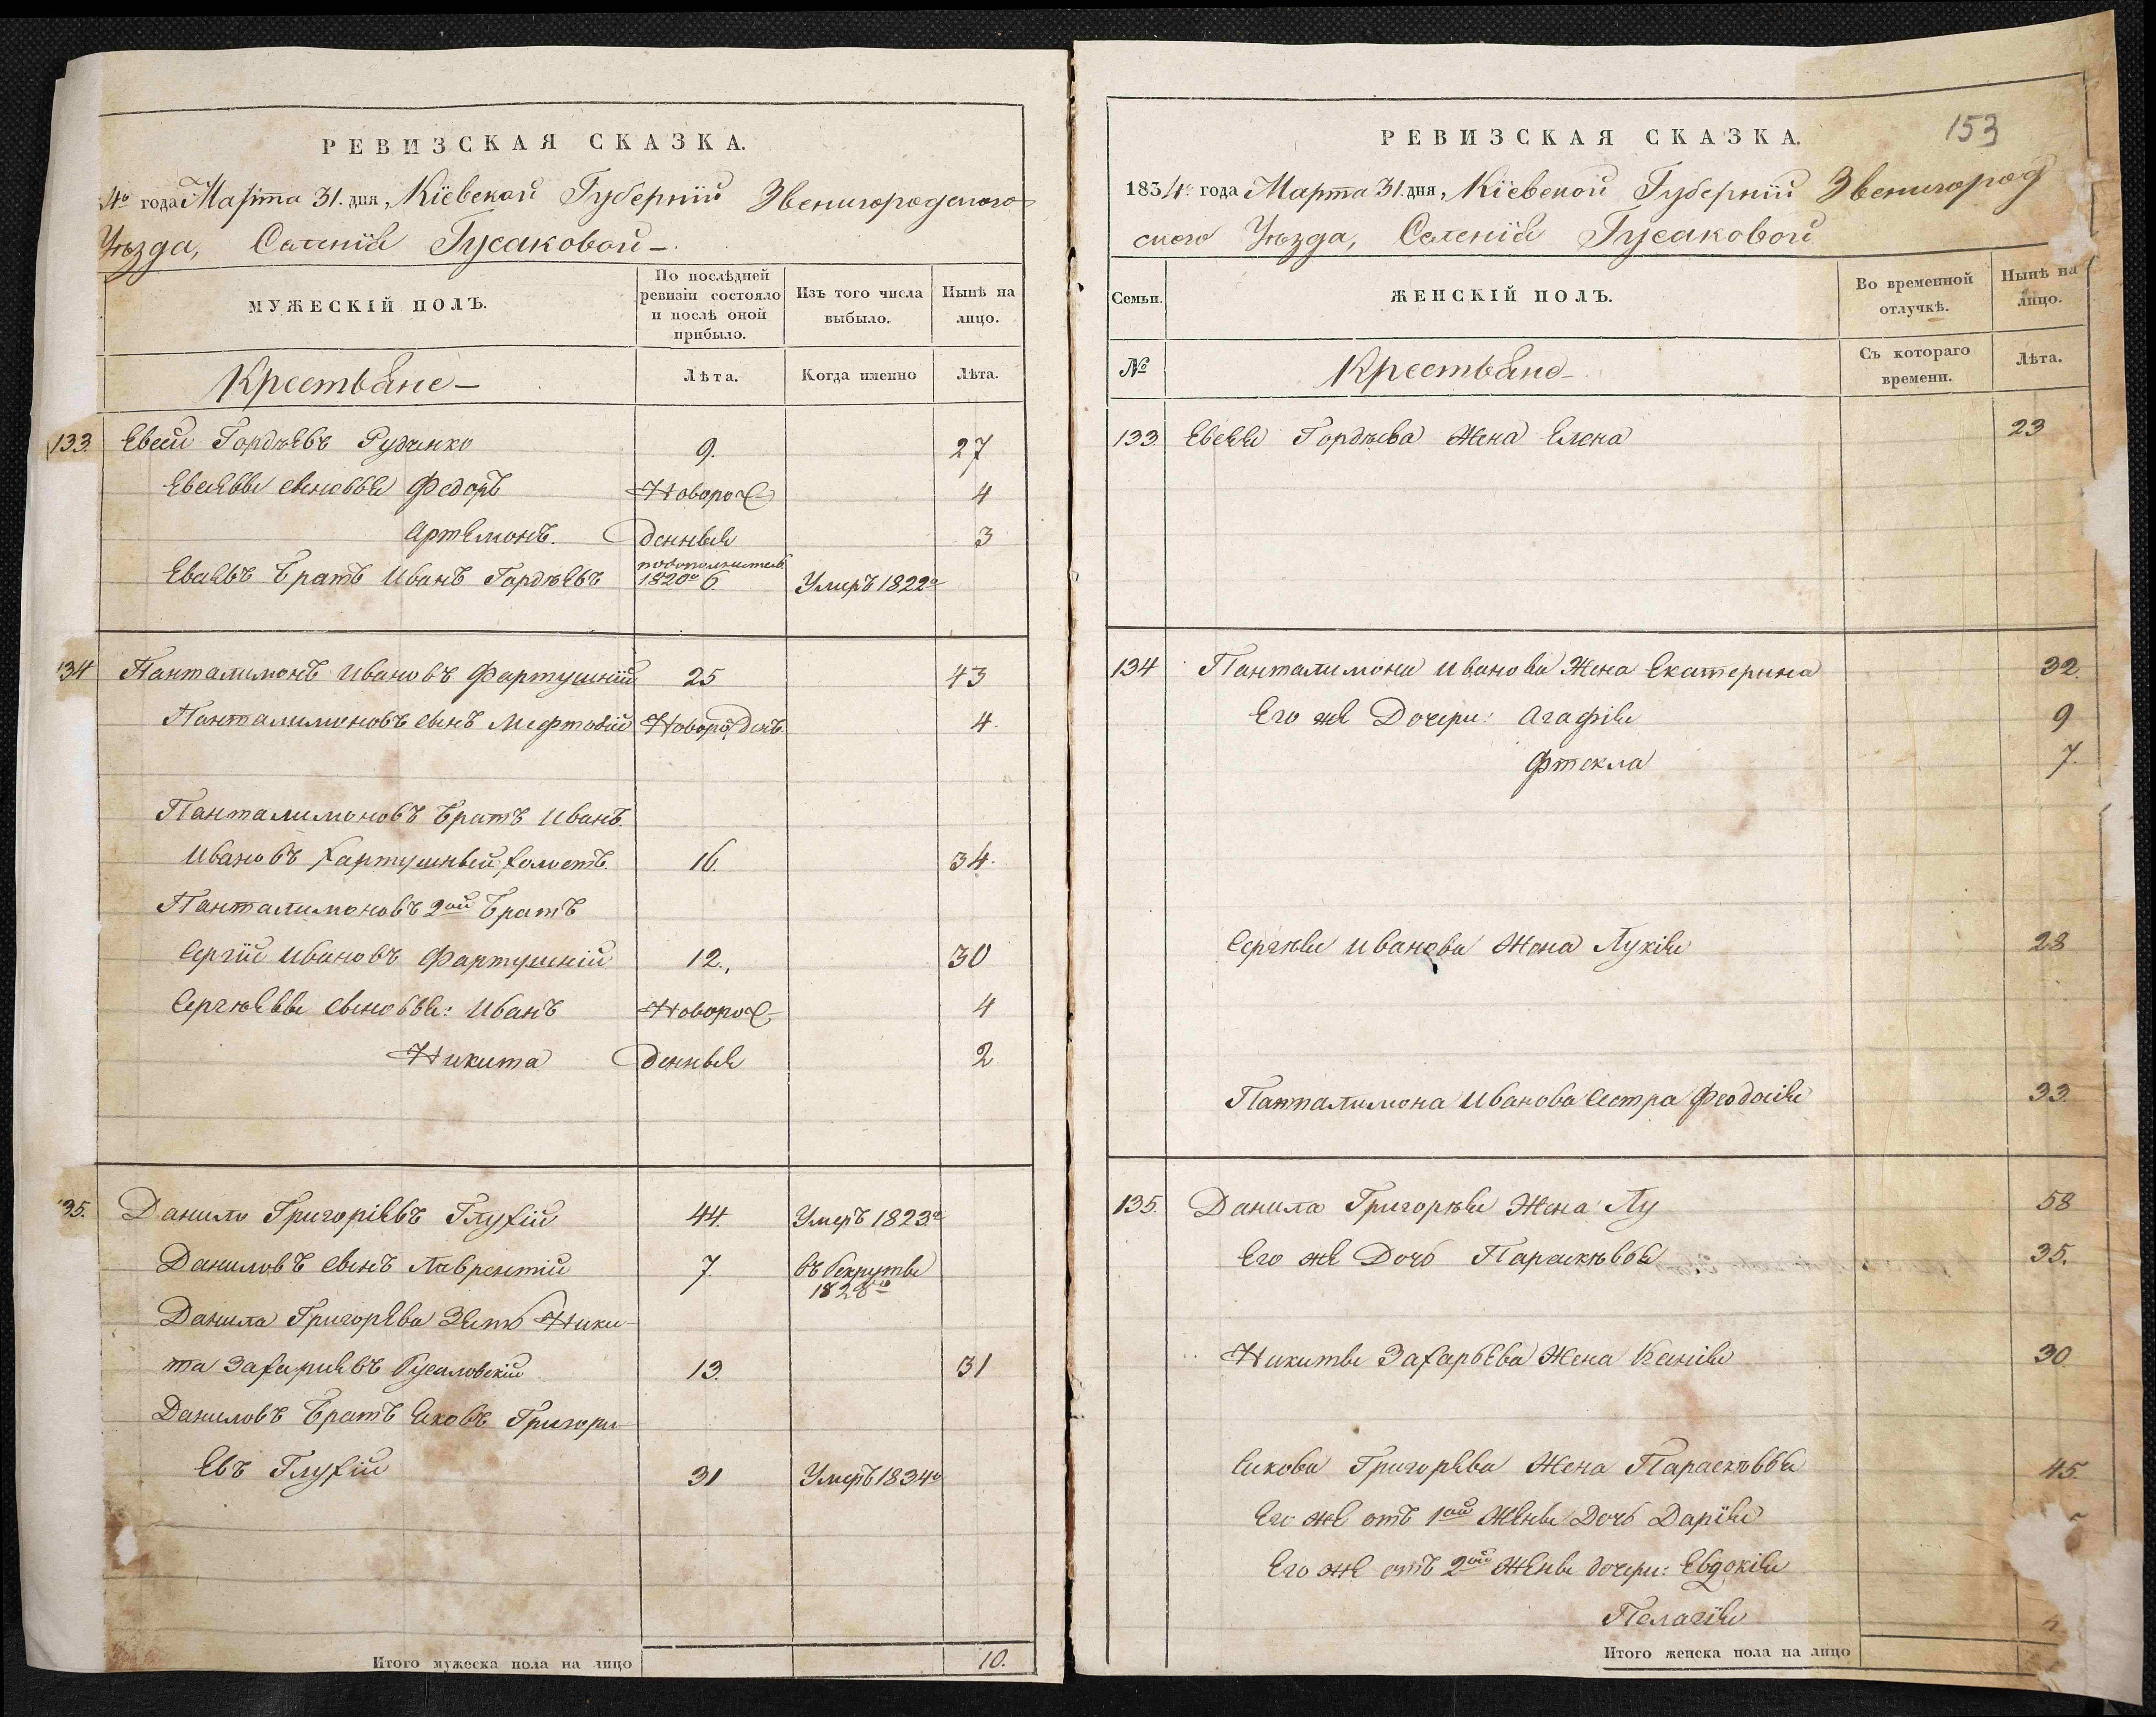 РЕВИЗСКАЯ СКАЗКА.
4го года Марта 31. дня, Кіевской Губерніи Звенигородского
Уѣзда, Селенія Гусаковой
МУЖЕСКІЙ ПОЛЪ.
По послѣдней ревизіи состояло и послѣ оной прибыло.
Изъ того числа выбыло.
Нынѣ на лицо.
Крестьяне
Лѣта.
Когда именно
Лѣта.
133. Евсей Гордѣевъ Руденко 9. 27
Евсеевы сыновья Федоръ Новорож 4
Артемонъ. денныя 3
Евсеевъ братъ Иванъ Гордѣевъ подополнитель 1820го 6. Умеръ 1822го
134 Панталимонъ Ивановъ Фартушній 25 43
Панталимоновъ сынъ Мефтодій Новорожденъ 4.
Панталимоновъ братъ Иванъ.
Ивановъ Хартушный, холостъ. 16. 34.
Панталимоновъ 2ой братъ
Сергій Ивановъ Фартушній 12., 30
Сергѣевы сыновья: Иванъ Новорож 4
Никита денныя 2
135. Данило Григоріевъ Глухій 44. Умеръ 1823го
Даниловъ сынъ Лаврентій 7. въ рекруты 1828го
Данила Григорьева Зять Ники-
та Захаріевъ Русаловскій 13. 31
Даниловъ братъ Яковъ Григори
евъ Глухій 31 Умеръ 1834го
Итого мужеска пола на лицо 10.
153
РЕВИЗСКАЯ СКАЗКА.
1834го года Марта 31. дня, Кіевской Губерніи Звенигород
ского Уѣзда, Селенія Гусаковой
Семьи.
ЖЕНСКІЙ ПОЛЪ.
Во временной отлучкѣ.
Нынѣ на лицо.
№
Крестьяне
Съ котораго времени.
Лѣта.
133. Евсея Гордѣева Жена Елена 23
134 Панталимона Иванова Жена Екатерина 32.
Его же Дочери: Агафія 9
Фтекла 7.
Сергѣя Иванова Жена Лукія 28
Панталимона Иванова Сестра Феодосія 33.
135. Данила Григорѣя Жена Лу 58
Его же Дочь Параскѣвья 35.
Никиты Захарьева Жена Ксенія 30
Якова Григорьева Жена Параскѣвья 45.
Его же отъ 1ой Жены Дочь Дарія
Его же отъ 2ой Жены дочери: Евдокія
Пелагія
Итого женска пола на лицо